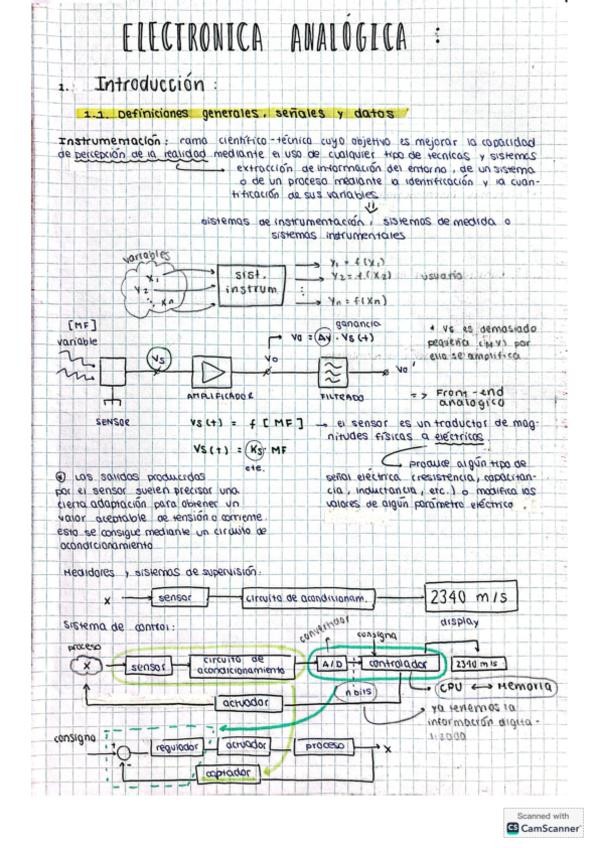 ELECTRONICA ANALÓGICA :
1. Introducción :
1.1. Definiciones generales, señales y datos
Instrumentación : rama científico-técnica cuyo objetivo es mejorar la capacidad
de percepción de la realidad mediante el uso de cualquier tipo de técnicas y sistemas
extracción de información del entorno, de un sistema
o de un proceso mediante la identificación y la cuan-
tificación de sus variables
⇓
sistemas de instrumentación, sistemas de medida o
sistemas instrumentales
variables
X1
X2
Xn
sist.
instrum.
Y1 = f(X1)
Y2 = f(X2)
Yn = f(Xn)
usuario
[MF]
variable
Vs
ganancia
Vo = Av · Vs(t)
Vo
Vo'
* Vs es demasiado
pequeña (mV) por
ello se amplifica
SENSOR
AMPLIFICADOR
FILTREADO
=> Front-end
analogico
Vs(t) = f [MF] → el sensor es un traductor de mag-
nitudes físicas a eléctricas.
Vs(t) = Ks · MF
cte.
produce algún tipo de
señal eléctrica (resistencia, capacitan-
cia, inductancia, etc.) o modifica los
valores de algún parámetro eléctrico.
Las salidas producidas
por el sensor suelen precisar una
cierta adaptación para obtener un
valor aceptable de tensión o corriente.
esto se consigue mediante un circuito de
acondicionamiento
Medidores y sistemas de supervisión:
X sensor circuito de acondicionam. 2340 m/s
display
Sistema de control:
proceso
X
sensor
circuito de
acondicionamiento
convertidor
A/D
consigna
controlador
2340 m/s
n bits
CPU ↔ Memoria
actuador
ya tenemos la
información digita-
lizada
consigna
+
-
regulador
actuador
proceso
X
captador
Scanned with
CS CamScanner